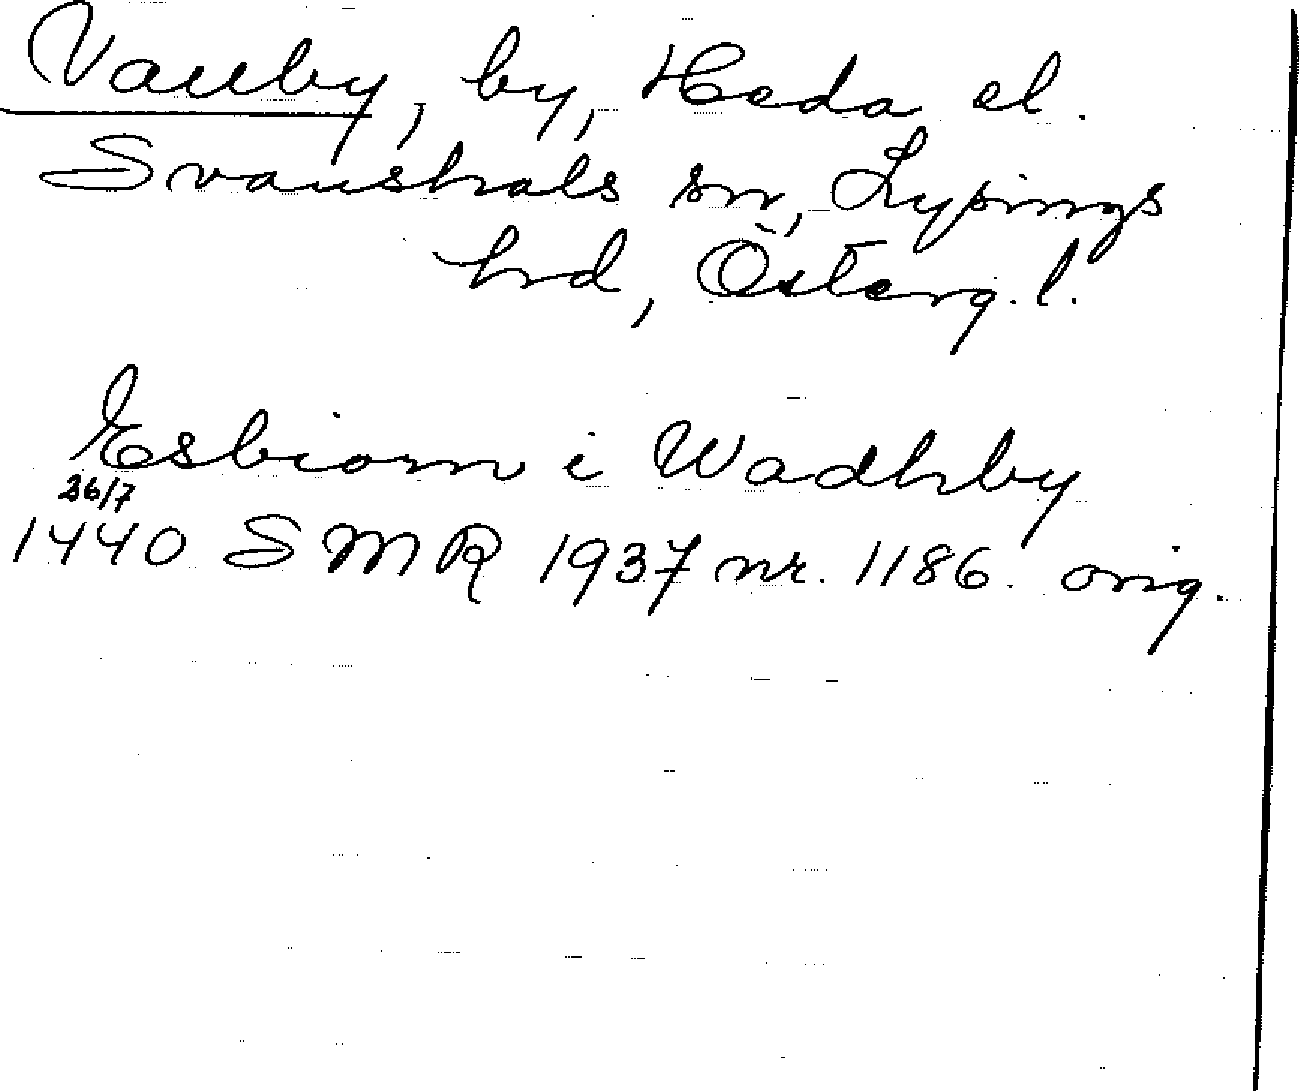 Vallby, by, Heda el.
Svanshals sn, Lysings
hrd, Österg. l.
Esbiorn i Wadhby
26/7
1440 SMR 1937 nr. 1186. orig.